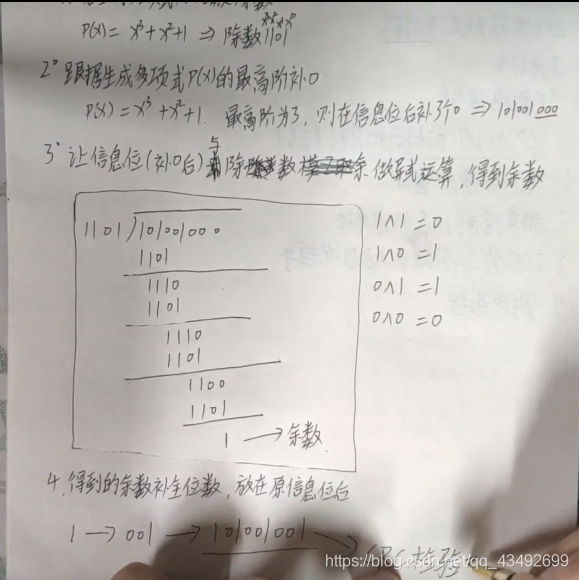 P(x) = x³+x²+1 ⇒ 除数 1101
x³x²x¹x⁰
2° 跟据生成多项式P(x)的最高阶补0
P(x) = x³+x²+1. 最高阶为3, 则在信息位后补3个0 ⇒ 10100 1000
3° 让信息位(补0后)与除数 做异或运算, 得到余数
1101 ) 101001000
1101
1110
1101
1110
1101
1100
1101
1 → 余数
1∧1 = 0
1∧0 = 1
0∧1 = 1
0∧0 = 0
4. 得到的余数补全位数, 放在原信息位后
1 → 001 → 101001001 →
https://blog.csdn.net/qq_43492699